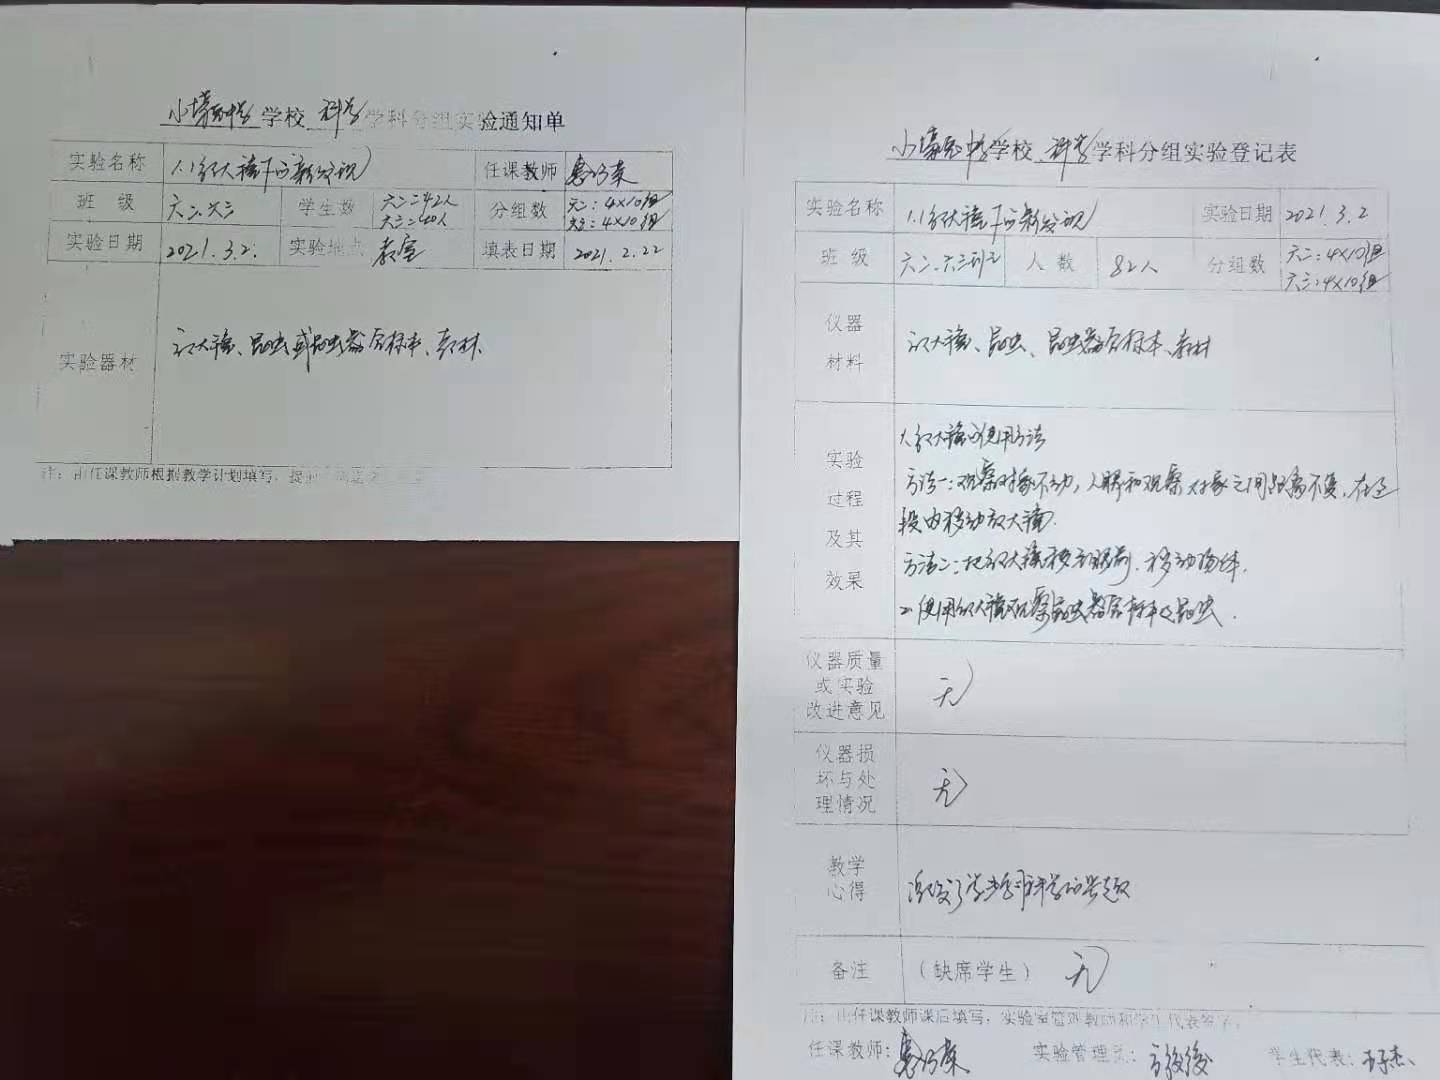 学校 科学 学科分组实验通知单
实验名称 1.1放大镜下的新发现 任课教师
班 级 六二、六三 学生数 六二:42人 六三:40人 分组数 六二:4×10组 六三:4×10组
实验日期 2021.3.2. 实验地点 教室 填表日期 2021.2.22
实验器材 放大镜、昆虫或昆虫器官标本、教材.
注:由任课教师根据教学计划填写,提前
学校 科学 学科分组实验登记表
实验名称 1.1放大镜下的新发现 实验日期 2021.3.2
班 级 六二、六三班 人 数 82人 分组数 六二:4×10组
六三:4×10组
仪器
材料
放大镜、昆虫、昆虫器官标本、教材
实验
过程
及其
效果
1.放大镜的使用方法
方法一:观察对象不动,人眼和观察对象之间距离不变,在这
段内移动放大镜.
方法二:把放大镜移至眼前,移动物体.
2.使用放大镜观察昆虫器官标本及昆虫.
仪器质量
或实验
改进意见
无
仪器损
坏与处
理情况
无
教学
心得
激发了学生学习科学的兴趣
备注 (缺席学生) 无
注:由任课教师课后填写,实验室管理教师和学生代表签字。
任课教师: 实验管理员: 学生代表: